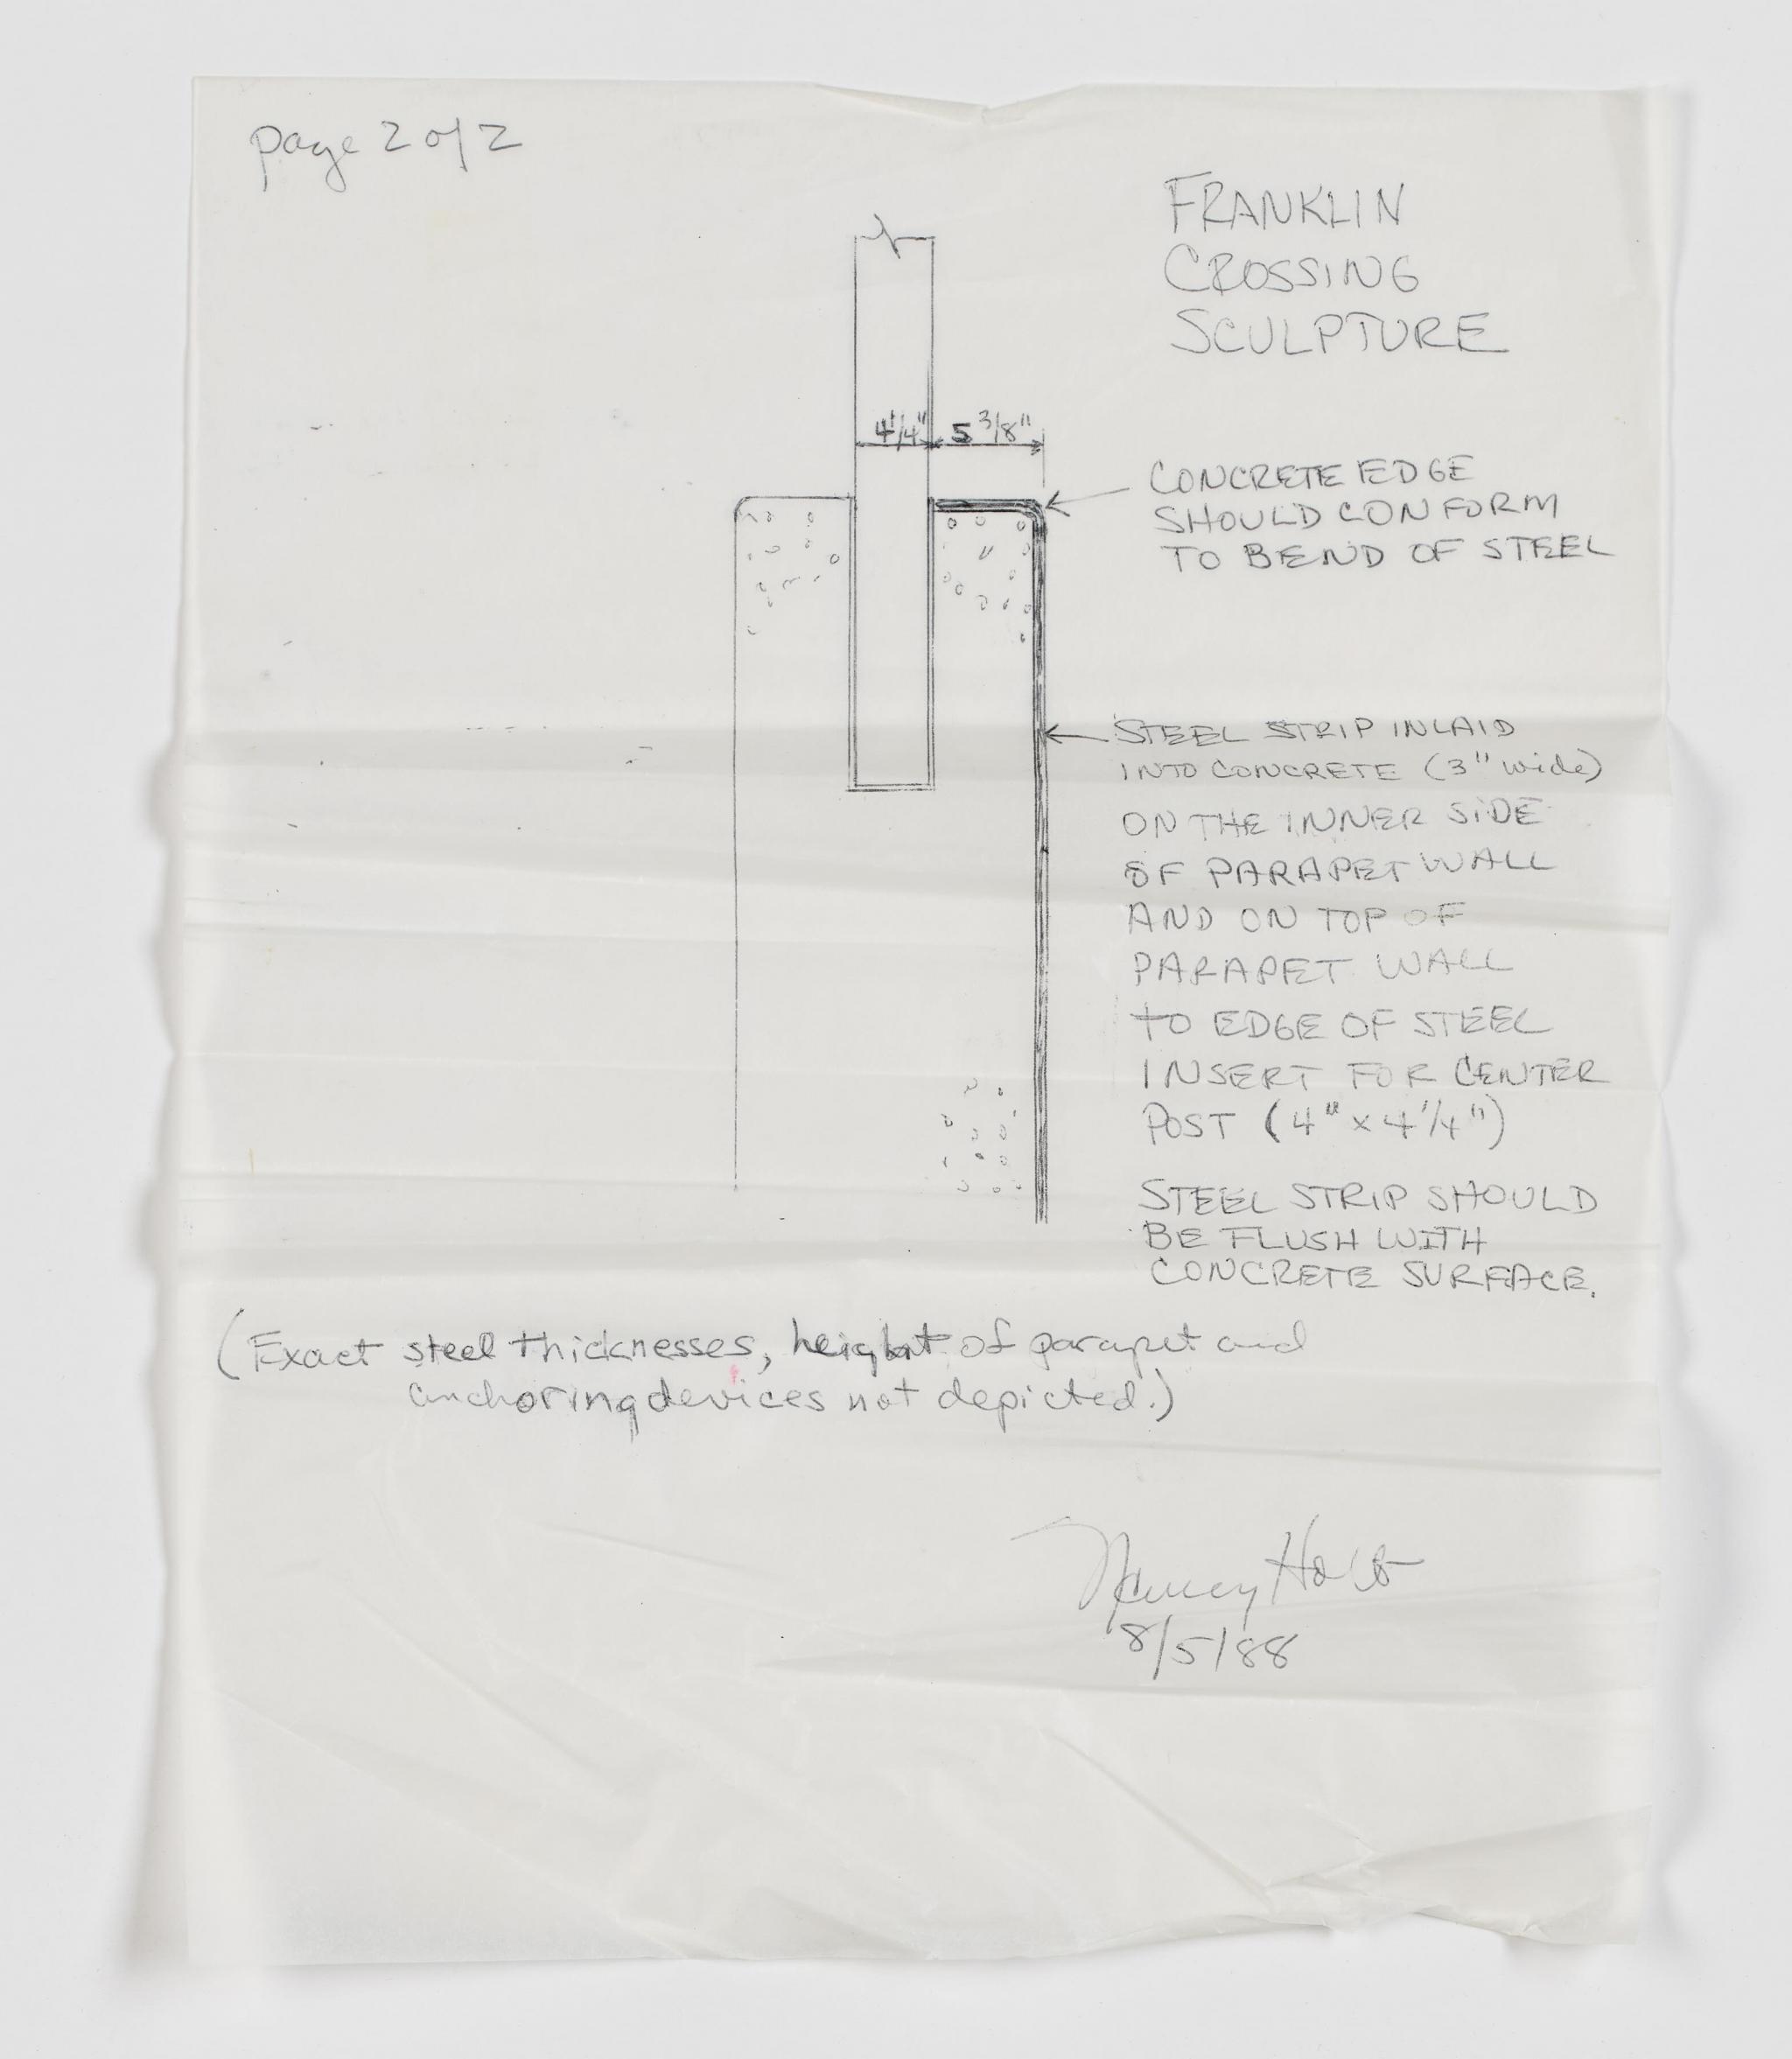 page 2 of 2
FRANKLIN
CROSSING
SCULPTURE
4 1/4" 5 3/8"
CONCRETE EDGE
SHOULD CONFORM
TO BEND OF STEEL
STEEL STRIP INLAID
INTO CONCRETE (3" wide)
ON THE INNER SIDE
OF PARAPET WALL
AND ON TOP OF
PARAPET WALL
TO EDGE OF STEEL
INSERT FOR CENTER
POST (4" x 4 1/4")
STEEL STRIP SHOULD
BE FLUSH WITH
CONCRETE SURFACE.
(Exact steel thicknesses, height of parapet and
anchoring devices not depicted.)
Nancy Holt
8/5/88